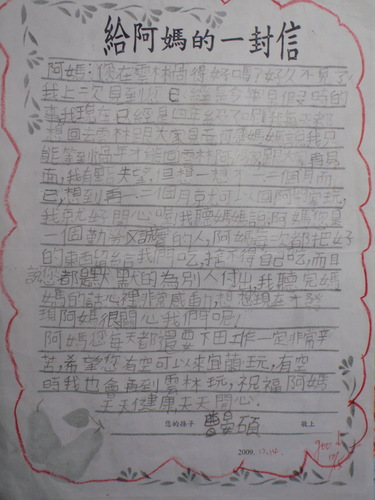 給阿媽的一封信
阿媽：您在雲林過得好嗎？好久不見了
我上次見到您已經是
事我現在已經是四
想回去雲林跟大家見面可是媽媽說我只
能等到過年才能回雲林跟大家見
面，我有點失望，但想一想不一二個月而
已，想到再一二個月就可以回阿媽家玩，
我就好開心喔！我聽媽媽說，阿媽您是
一個勤勞又誠懇的人，阿媽每次都把好
的東西留給我們吃，捨不得自己吃，而且
說您都默默的為別人付出，我聽完媽
媽的話心裡非常感動，想想現在才發
現阿媽很關心我們呢！
阿媽您每天都還要下田工作一定非常辛
苦，希望您有空可以來宜蘭玩，有空
時我也會再到雲林玩，祝福阿媽
天天健康天天開心。
您的孫子 曹晏碩 敬上
2009. 12.14.